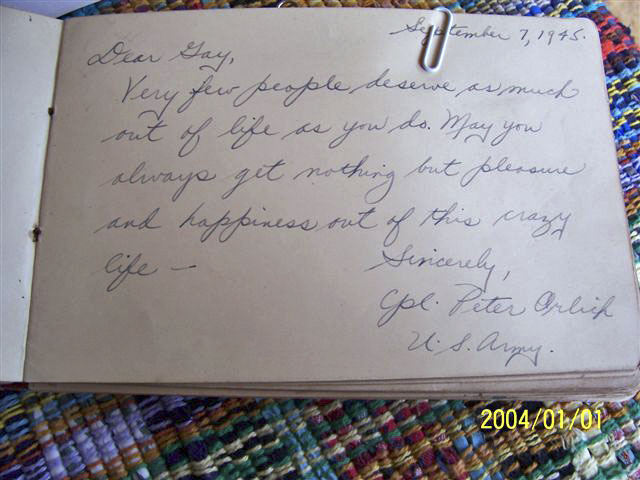 September 7, 1945.
Dear Gay,
Very few people deserve as much
out of life as you do. May you
always get nothing but pleasure
and happiness out of this crazy
life —
Sincerely,
Cpl. Peter Orlich
U. S. Army.
2004/01/01